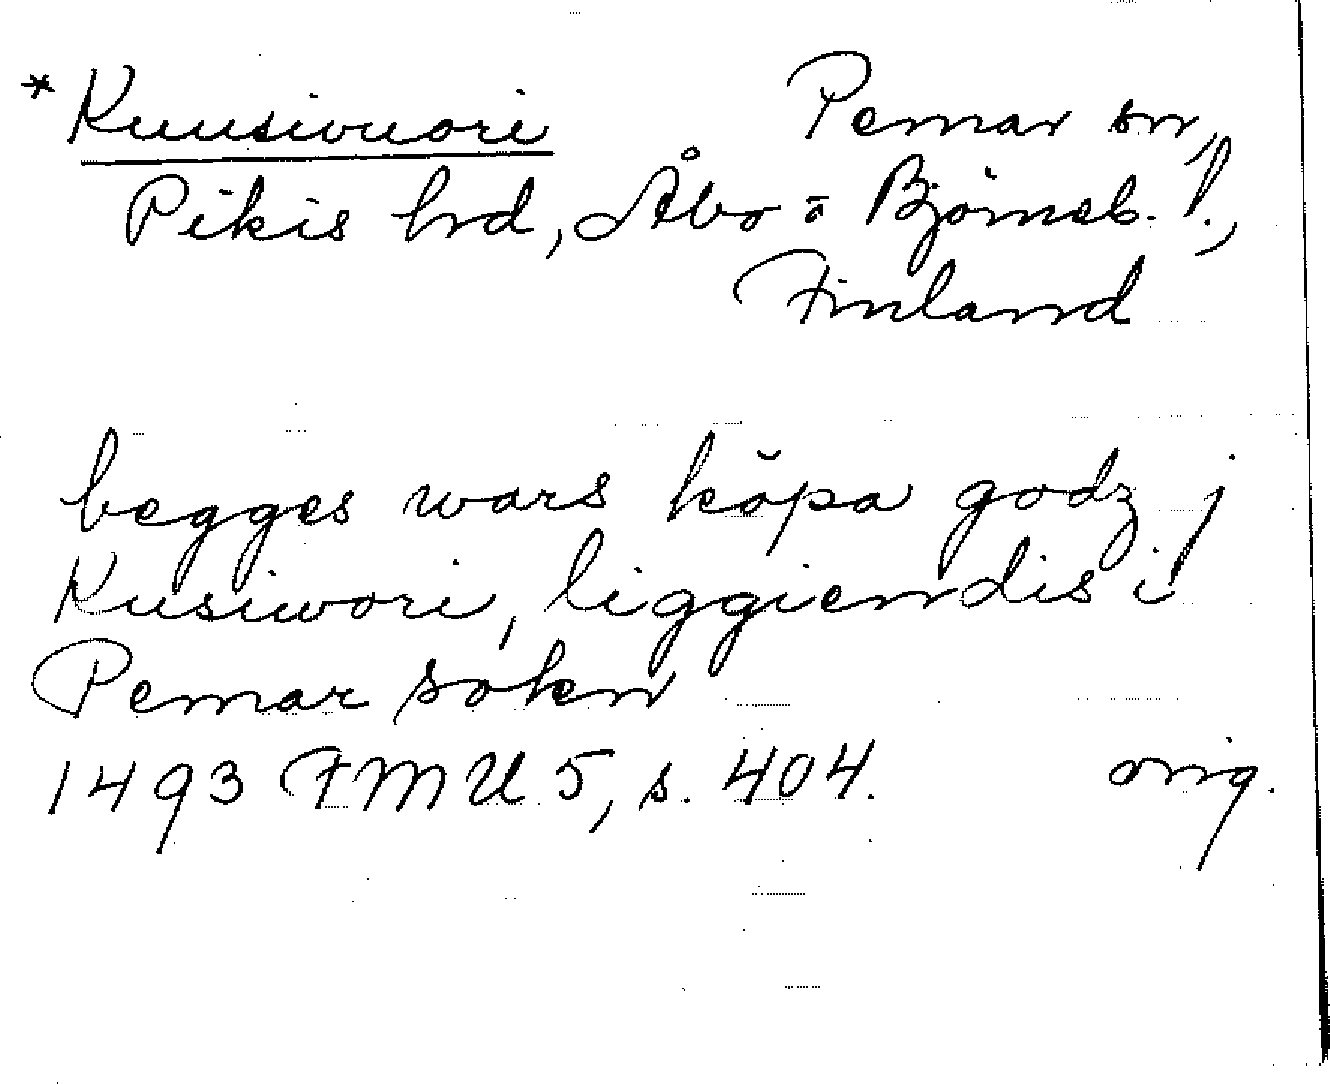 * Kuusivuori Pemar sn,
Pikis hd, Åbo o Björneb. l.,
Finland
begges wars köpa godz j
Kusiwori, liggiendis i
Pemar sokn
1493 FMU 5, s. 404. orig.